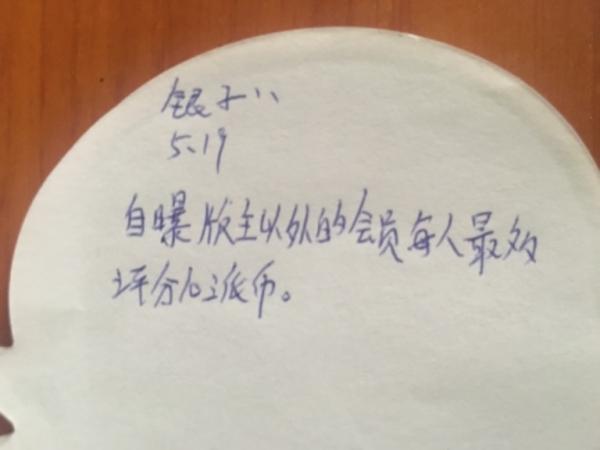 银子八
5.19
自曝版主以外的会员每人最多
评分10派币。